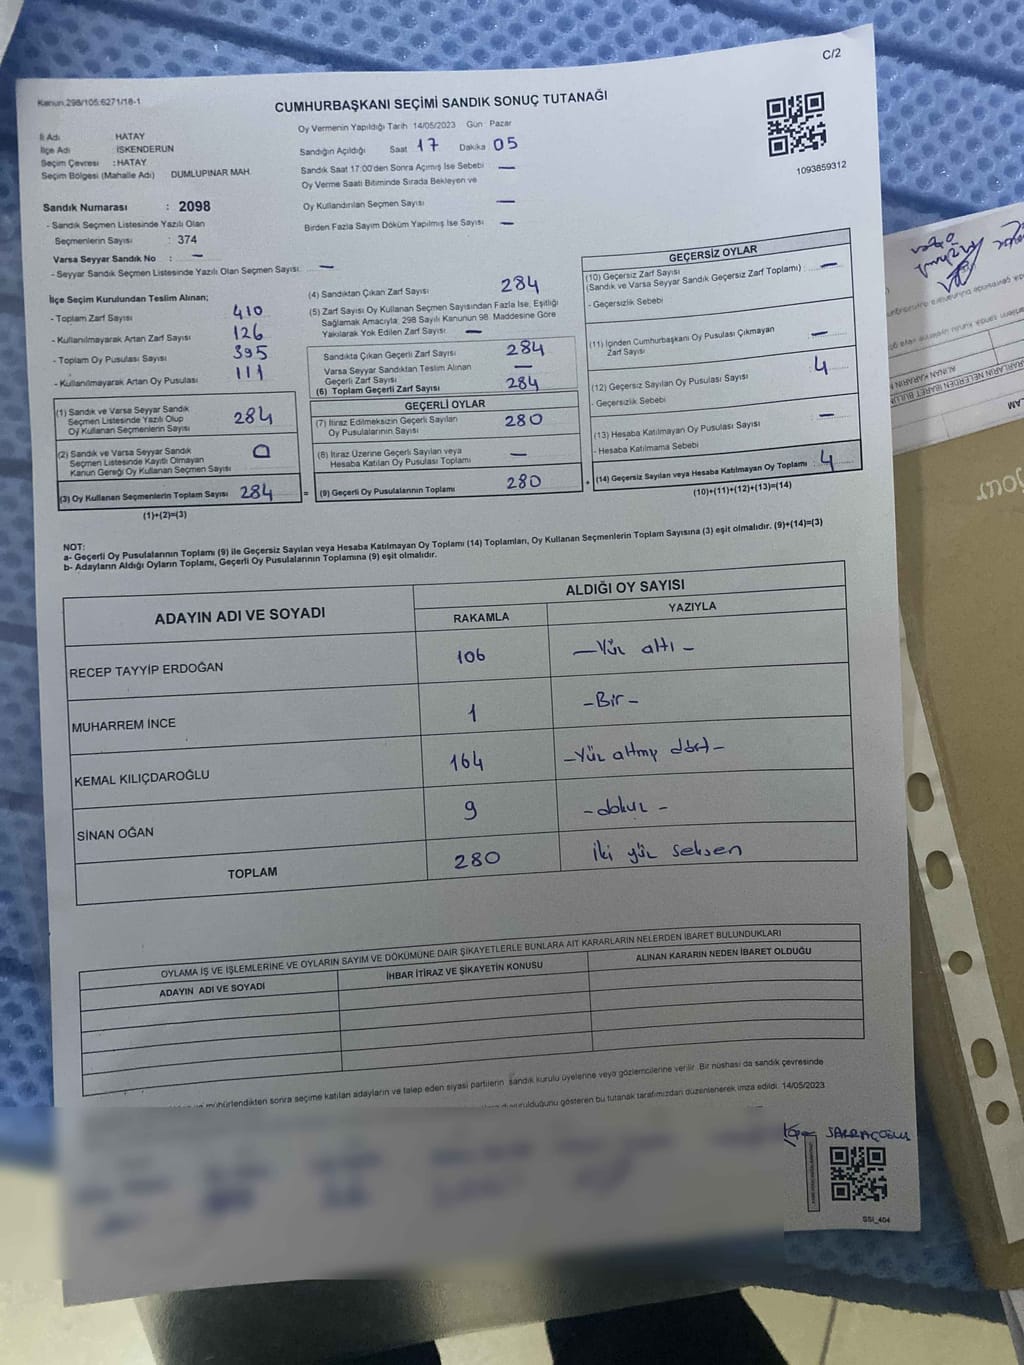 C/2
Kanun.298/105.6271/18-1
CUMHURBAŞKANI SEÇİMİ SANDIK SONUÇ TUTANAĞI
İl Adı HATAY
İlçe Adı İSKENDERUN
Seçim Çevresi : HATAY
Seçim Bölgesi (Mahalle Adı) DUMLUPINAR MAH.
Oy Vermenin Yapıldığı Tarih 14/05/2023 Gün Pazar
Sandığın Açıldığı Saat 17 Dakika 05
Sandık Saat 17:00'den Sonra Açılmış İse Sebebi —
Oy Verme Saati Bitiminde Sırada Bekleyen ve
Oy Kullandırılan Seçmen Sayısı —
Birden Fazla Sayım Döküm Yapılmış İse Sayısı —
1093859312
Sandık Numarası : 2098
- Sandık Seçmen Listesinde Yazılı Olan
Seçmenlerin Sayısı : 374
Varsa Seyyar Sandık No : —
- Seyyar Sandık Seçmen Listesinde Yazılı Olan Seçmen Sayısı. —
İlçe Seçim Kurulundan Teslim Alınan;
- Toplam Zarf Sayısı 410
- Kullanılmayarak Artan Zarf Sayısı 126
- Toplam Oy Pusulası Sayısı 395
- Kullanılmayarak Artan Oy Pusulası 111
(1) Sandık ve Varsa Seyyar Sandık
Seçmen Listesinde Yazılı Olup
Oy Kullanan Seçmenlerin Sayısı 284
(2) Sandık ve Varsa Seyyar Sandık
Seçmen Listesinde Kayıtlı Olmayan
Kanun Gereği Oy Kullanan Seçmen Sayısı 0
(3) Oy Kullanan Seçmenlerin Toplam Sayısı 284
(1)+(2)=(3)
(4) Sandıktan Çıkan Zarf Sayısı 284
(5) Zarf Sayısı Oy Kullanan Seçmen Sayısından Fazla İse, Eşitliği
Sağlamak Amacıyla, 298 Sayılı Kanunun 98. Maddesine Göre
Yakılarak Yok Edilen Zarf Sayısı —
Sandıkta Çıkan Geçerli Zarf Sayısı 284
Varsa Seyyar Sandıktan Teslim Alınan
Geçerli Zarf Sayısı —
(6) Toplam Geçerli Zarf Sayısı 284
GEÇERLİ OYLAR
(7) İtiraz Edilmeksizin Geçerli Sayılan
Oy Pusulalarının Sayısı 280
(8) İtiraz Üzerine Geçerli Sayılan veya
Hesaba Katılan Oy Pusulası Toplamı —
= (9) Geçerli Oy Pusulalarının Toplamı 280
GEÇERSİZ OYLAR
(10) Geçersiz Zarf Sayısı
(Sandık ve Varsa Seyyar Sandık Geçersiz Zarf Toplamı) : —
- Geçersizlik Sebebi
(11) İçinden Cumhurbaşkanı Oy Pusulası Çıkmayan
Zarf Sayısı —
(12) Geçersiz Sayılan Oy Pusulası Sayısı 4
- Geçersizlik Sebebi
(13) Hesaba Katılmayan Oy Pusulası Sayısı —
- Hesaba Katılmama Sebebi
+ (14) Geçersiz Sayılan veya Hesaba Katılmayan Oy Toplamı 4
(10)+(11)+(12)+(13)=(14)
NOT:
a- Geçerli Oy Pusulalarının Toplamı (9) ile Geçersiz Sayılan veya Hesaba Katılmayan Oy Toplamı (14) Toplamları, Oy Kullanan Seçmenlerin Toplam Sayısına (3) eşit olmalıdır. (9)+(14)=(3)
b- Adayların Aldığı Oyların Toplamı, Geçerli Oy Pusulalarının Toplamına (9) eşit olmalıdır.
ADAYIN ADI VE SOYADI ALDIĞI OY SAYISI
RAKAMLA YAZIYLA
RECEP TAYYİP ERDOĞAN 106 —Yüz altı—
MUHARREM İNCE 1 —Bir—
KEMAL KILIÇDAROĞLU 164 —Yüz altmış dört—
SİNAN OĞAN 9 —dokuz—
TOPLAM 280 İki yüz seksen
OYLAMA İŞ VE İŞLEMLERİNE VE OYLARIN SAYIM VE DÖKÜMÜNE DAİR ŞİKAYETLERLE BUNLARA AİT KARARLARIN NELERDEN İBARET BULUNDUKLARI
ADAYIN ADI VE SOYADI İHBAR İTİRAZ VE ŞİKAYETİN KONUSU ALINAN KARARIN NEDEN İBARET OLDUĞU
mühürlendikten sonra seçime katılan adayların ve talep eden siyasi partilerin sandık kurulu üyelerine veya gözlemcilerine verilir. Bir nüshası da sandık çevresinde
gösteren bu tutanak tarafımızdan düzenlenerek imza edildi. 14/05/2023
SSI_404